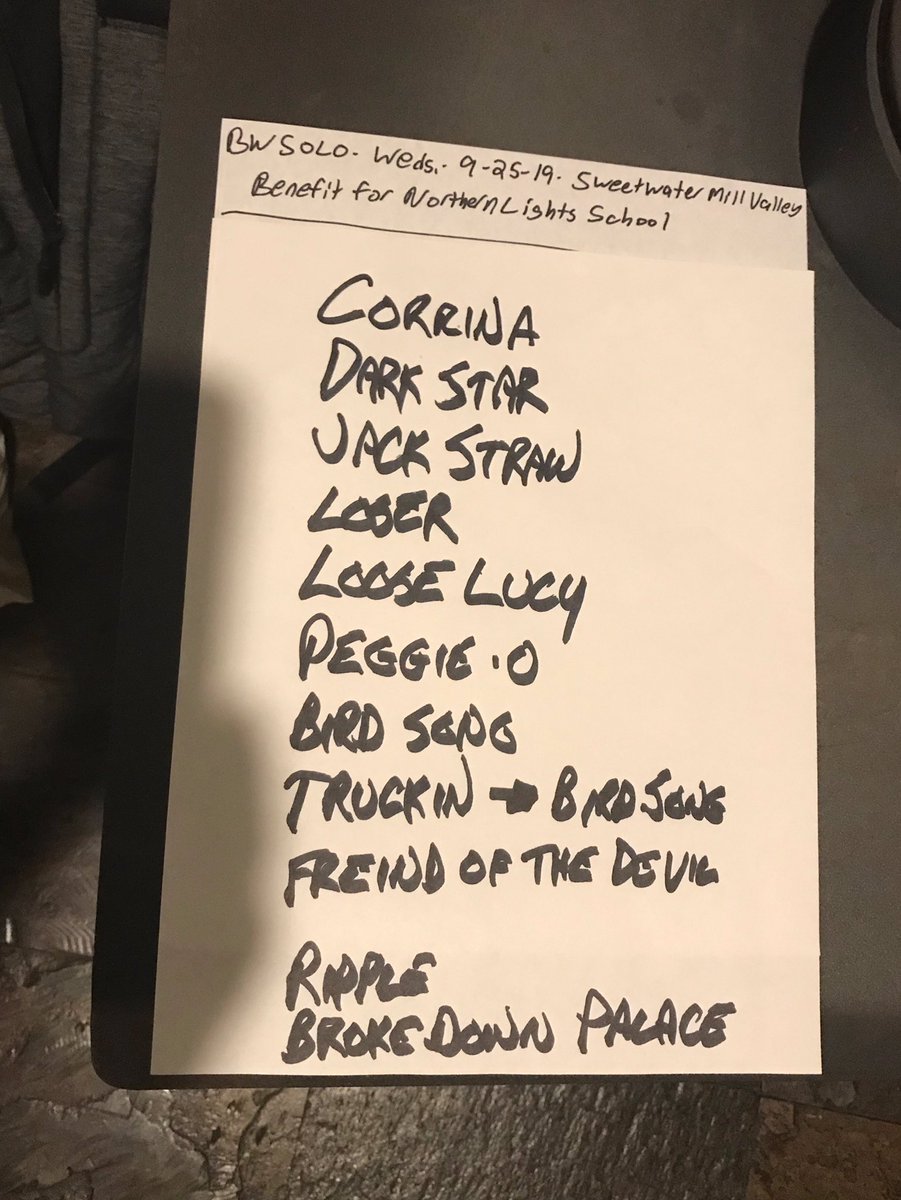 BW SOLO. Weds.- 9-25-19. Sweetwater Mill Valley
Benefit for Northern Lights School
CORRINA
DARK STAR
JACK STRAW
LOSER
LOOSE LUCY
PEGGIE-O
BIRD SONG
TRUCKIN → BIRD SONG
FREIND OF THE DEVIL
RIPPLE
BROKEDOWN PALACE